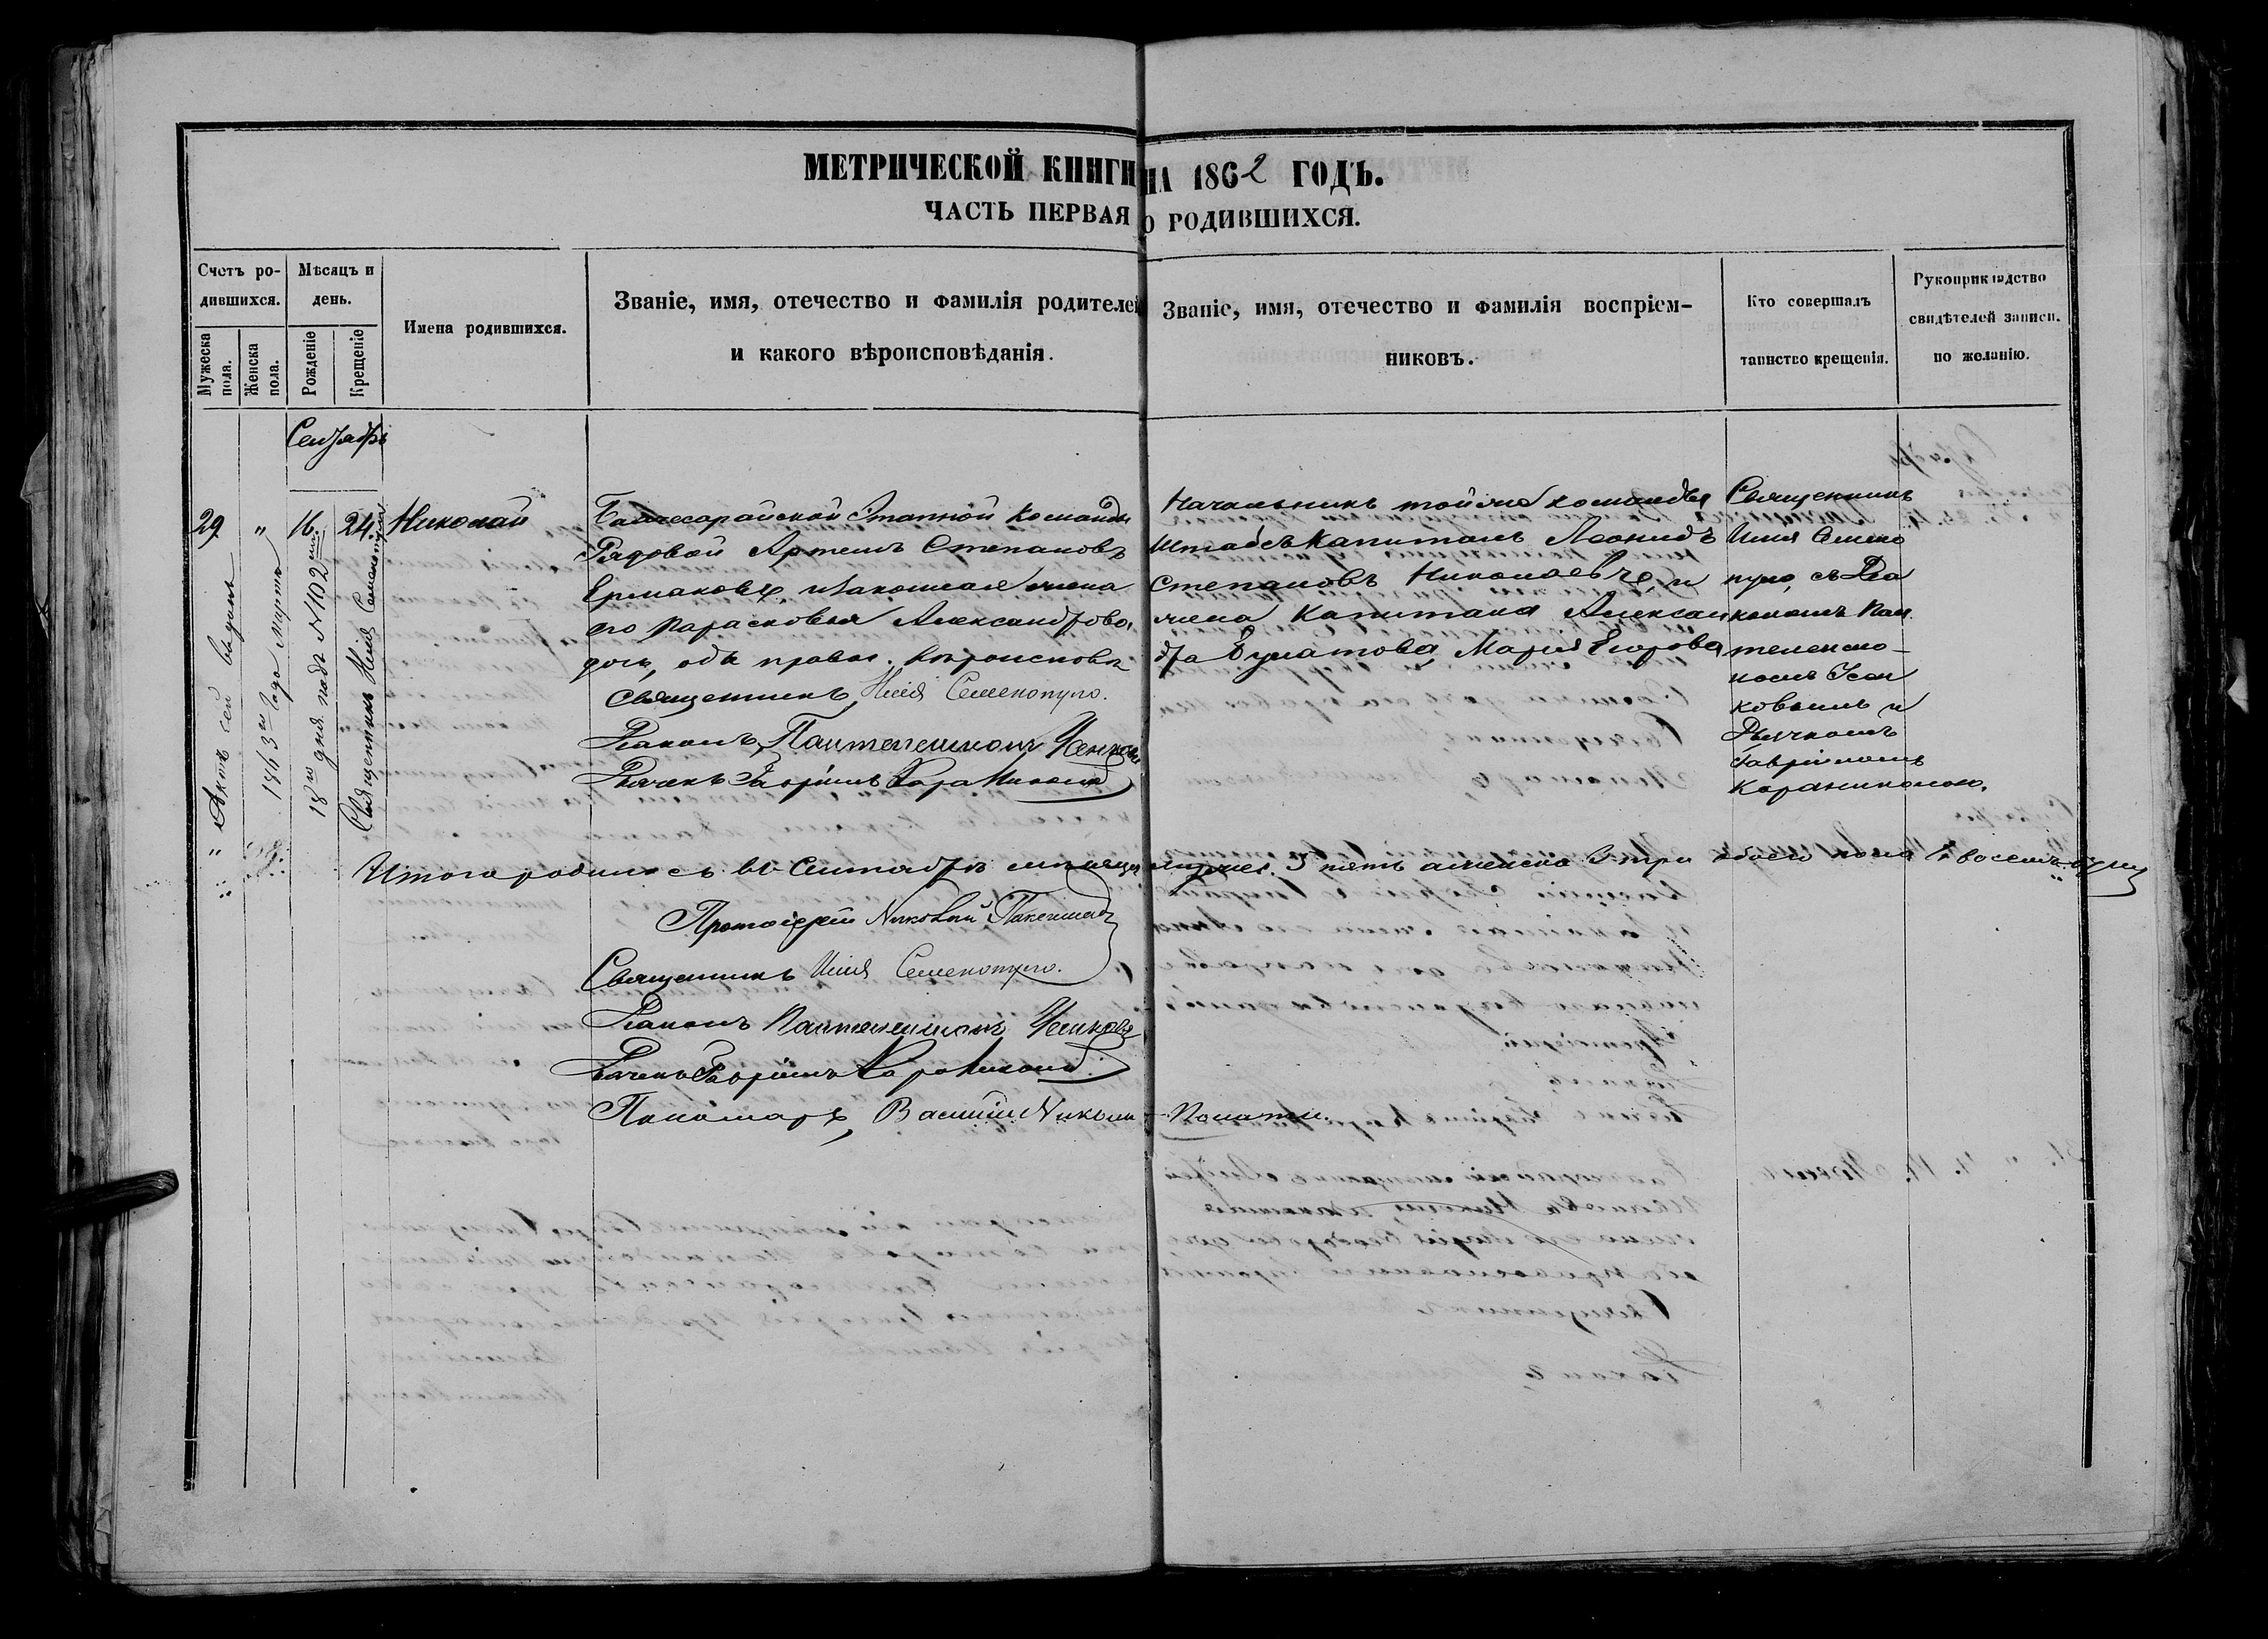 МЕТРИЧЕСКОЙ КНИГИ НА 1862 ГОДЪ.
ЧАСТЬ ПЕРВАЯ О РОДИВШИХСЯ.
Счетъ ро-
дившихся.
Мужеска
пола.
Женска
пола.
Мѣсяцъ и
день.
Рожденіе
Крещеніе
Имена родившихся.
Званіе, имя, отечество и фамилія родителей
и какого вѣроисповѣданія.
Званіе, имя, отечество и фамилія воспріем-
никовъ.
Кто совершалъ
таинство крещенія.
Рукоприкладство
свидѣтелей записи
по желанію.
Сентябрь
29
"
16.
24.
Николай
Бахчесарайской Этапной Команды
Рядовой Артемъ Степановъ
Ермаковъ, и законная жена
его Парасковья Александрова
дочь, оба правос. вѣроисповѣ
Священникъ Илія Семенопуло.
Діаконъ Пантелеимонъ
Дьячекъ Гавріилъ Кара Никола
Начальникъ той же команды
Штабсъ Капитанъ Леонидъ
Степановъ Николаевъ, и
жена Капитана Алексан
дра Булатова, Марія Егорова
Священникъ
Илія Семено
пуло, съ Діа
кономъ Пан
телеимо-
номъ
ковымъ и
Дьячкомъ
Гавріиломъ
Караниколою.
Актъ сей выданъ
1863го года Марта
18го дня подъ N 102мъ
Священникъ Илія Семенопуло
Итого родилось въ Сентябрѣ мѣсяцѣ мужес. 5 пять женска 3 три обоего пола 8 восемь душъ
Протоіерей Николай
Священникъ Илія Семенопуло.
Діаконъ Пантелеимонъ
Дьячекъ Гавріилъ Кара Никола
Пономарь, Василій Никола-